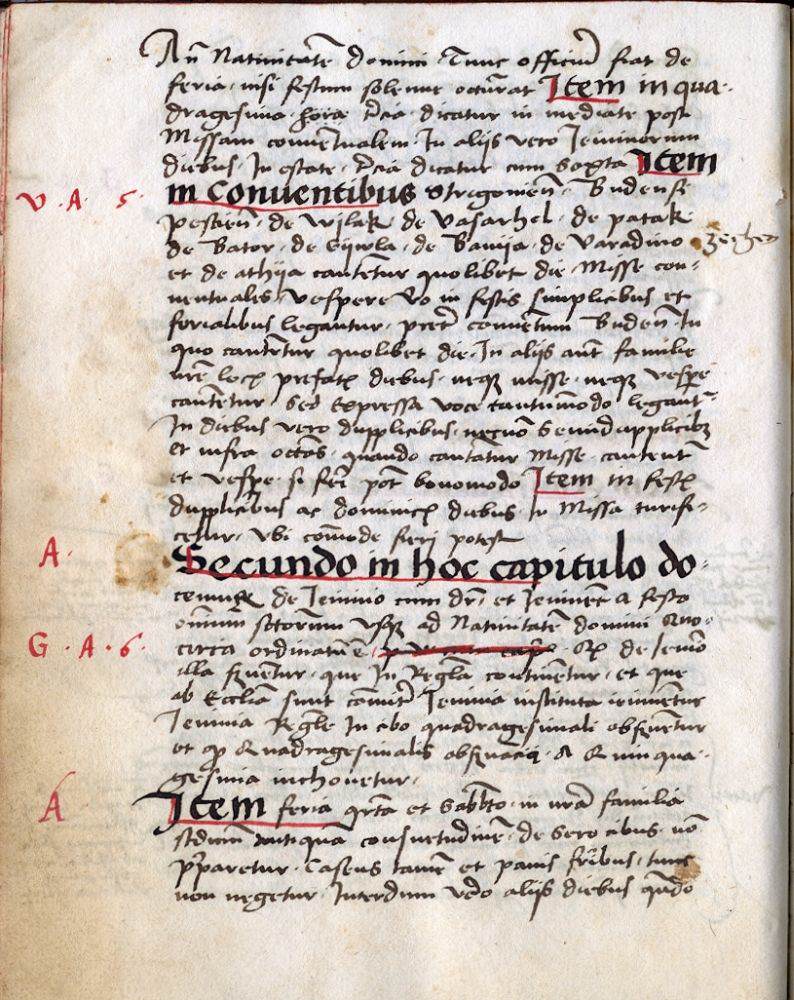 An̄ Natiuitatē domini Tunc officiū fiat de
feria nisi festum solenne occurrat Item in qua-
dragesima hora t̄cia dicatur in mediate post
Missam conuentualem In alijs vero Ieiuniorum
diebus In estate t̄cia dicatur cum Sexta Item
V. A. 5. in Conuentibus Strigonien̄ Budense
pestien̄ de wylak de Vasarhel de patak
de Bator de Gywla de Banya de Varadino
et de athya cantētur quolibet die Misse con-
uentuales Vespere v̄o in festis simplicibus et
ferialibus legantur pret̄ conuētum Buden̄ In
quo cantētur quolibet die In alijs aūt familie
nr̄e locꝭ prefatꝭ diebus neqꝫ misse neqꝫ vespē
cantētur Sed Expressa voce tantūmodo legant̄
In diebus vero dupplicibus necnō Semidupplicibꝫ
et infra octās quando cantātur Misse cantent̄
et vespē si fieri pōt bonomodo Item in festꝭ
dupplicibus ac dominicꝭ diebus Missa turifi-
cetur vbi cōmode fieri potest
A. Secundo in hoc capitulo do-
cemur de Ieiunio cum dr̄ et Ieiunēt a festo
omnium sctorum vsqꝫ ad Natiuitatē domini
G. A. 6. circa ordinatū ē de Ieiūo
illa seruentur que In Regla continentur et que
ab Ecclīa sunt cōmunit̄ Ieiunia instituta
Ieiunia Regle In cibo quadragesimali obseruētur
et qꝫ Quadragesimalis obseruācia A Quinqua-
gesima inchoetur
A Item feria qrta et Sabbto in nrā familia
scdum antiquā consuetudinē de sero cibus nō
p̄paretur Caseus tamē et panis fr̄ibus tunc
non negetur Interdum vēo alijs diebus qn̄do